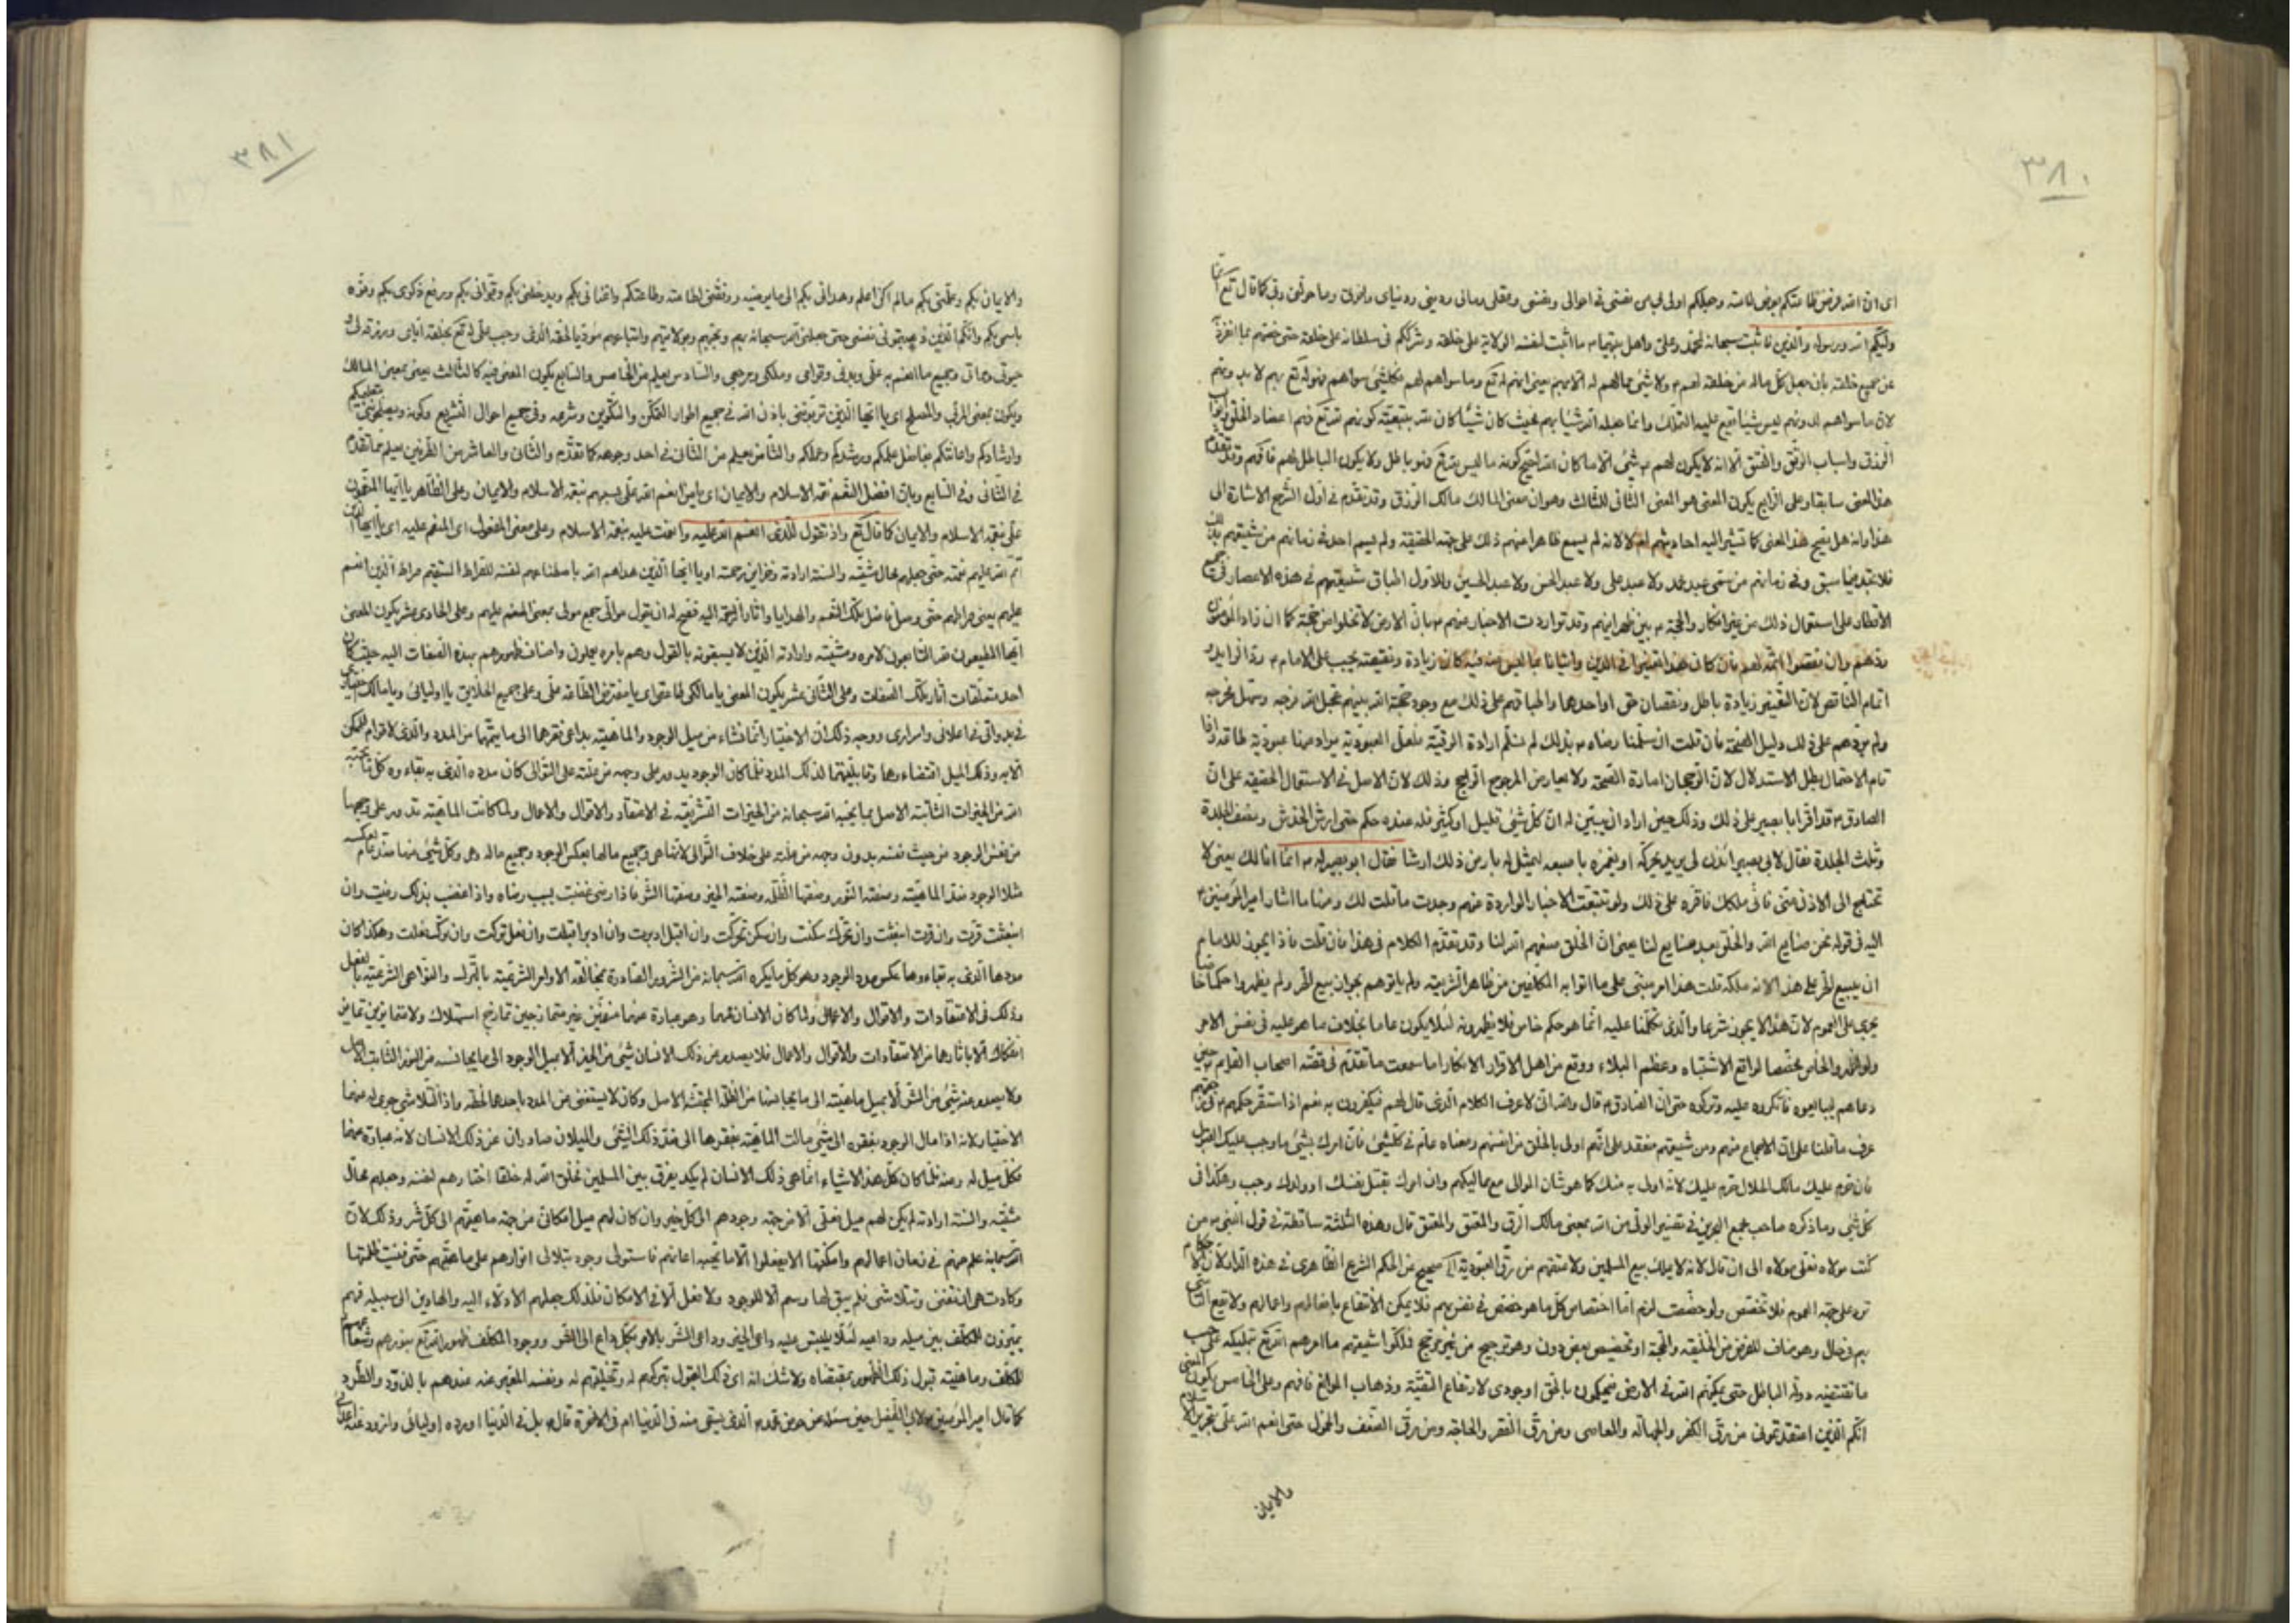 ٣٨٠
اى ان الله فرض طاعتكم بفرض طاعته وجعلكم اولى بى من نفسى فى احوالى ونفسى وعقلى ومالى ودينى ودنياى واخرتى وما خولنى ربى كما قال تع انما
وليكم الله ورسوله والذين فاثبت سبحانه لمحمد وعلى واهل بيتهما ما اثبت لنفسه الولاية على خلقه وشرككم فى سلطانه على خلقه حتى خصهم بما انفرد
عن جميع خلقه بان جعل كل ماله من خلقه لهم ولا شىء مما لهم له الا بهم يعنى انهم له تع وما سواهم لهم فكلشىء سواهم فهو له تع بهم لا بدونهم
لان ما سواهم بدونهم ليس شيئا يقع عليه التملك وانما جعله الله شيئا بهم بحيث كان شيئا كان لله بتبعية كونهم لله تع فهم اعضاد الخلق
الرزق واسباب الرتق والفتق الا انه لا يكون لهم شىء الا ما كان لله كونه ما ليس لله تع فهو باطل ولا يكون الباطل لهم فافهم وقد تقدم
هذا المعنى سابقا وعلى الرابع يكون المعنى هو المعنى الثانى للثالث وهو ان معنى المالك مالك الرزق وقد تقدم فى اول الشرح الاشارة الى
هذا وانه هل يصح هذا المعنى كما تشير اليه احاديثهم ام لا لانه لم يسمع ظاهرا منهم ذلك على جهة الحقيقة ولم يسم احد فى زمانهم من شيعتهم بذلك
فلا تجد فيما سبق وفى زمانهم من سمى عبد محمد ولا عبد على ولا عبد الحسن ولا عبد الحسين وللاول اطباق شيعتهم فى هذه الاعصار فى جميع
الاقطار على استعمال ذلك من غير انكار والحجة بين ظهرانيهم وقد تواردت الاخبار عنهم بان الارض لا تخلوا من حجة كما ان زاد المؤمنون
ردهم وان نقصوا اتمه لهم فان كان هذا تغييرا فى الدين واتيانا بما ليس منه فيه كان زيادة ونقيصة يجب على الامام رد الزايد و
اتمام الناقص لان التغيير زيادة باطل ونقصان حق او احدهما واطباقهم على ذلك مع وجود حجة الله بينهم عجل الله فرجه وسهل مخرجه
ولم يردهم على ذلك دليل الصحة فان قلت ان سلمنا رضاه بذلك لم نسلم ارادة الرقية فلعل العبودية يراد منها عبودية طاعة واذا
قام الاحتمال بطل الاستدلال لان الرجحان امارة الصحة ولا يعارض المرجوح الراجح وذلك لان الاصل فى الاستعمال الحقيقة على ان
الصادق قد اقر ابا بصير على ذلك وذلك حين اراد ان يبين له ان كل شىء قليل او كثير فله عنده حكم حتى ارش الخدش ونصف الجلدة
وثلث الجلدة فقال لابى بصير ائذن لى يريد يحركه او يغمزه باصبعه ليمثل له بارش ذلك ارشا فقال ابو بصير له انما انا لك يعنى لا
تحتاج الى الاذن منى فانى ملكك فاقره على ذلك ولو تتبعت الاخبار الواردة عنهم وجدت ما قلت لك ومنها ما اشار امير المؤمنين
اليه فى قوله نحن صنايع الله والخلق بعد صنايع لنا يعنى ان الخلق صنعهم الله لنا وقد تقدم الكلام فى هذا فان قلت فاذا يجوز للامام
ان يبيع الحر على هذا لانه ملكه قلت هذا امر مبنى على ما اتوا به المكلفين من ظاهر الشريعة ولم ياتوهم بجواز بيع الحر ولم يظهروا حكما خاصا
يجرى على العموم لان هذا لا يجوز شرعا والذى تكلمنا عليه انما هو حكم خاص فلا يظهرونه لئلا يكون عاما بخلاف ما هو عليه فى نفس الامر
ولو اظهروا الخاص مخصصا لواقع الاشتباه وعظم البلاء ووقع من اهل الاقرار الانكار اما سمعت ما تقدم فى قصة اصحاب القايم حين
دعاهم ليبايعوه فانكروه عليه وتركوه حتى ان الصادق قال والله انى لاعرف الكلام الذى قال لهم فيكفرون به نعم اذا استقر حكمهم
عرف ما قلنا على ان الاجماع منهم ومن شيعتهم منعقد على انهم اولى بالخلق من انفسهم ومعناه عام فى كلشىء فان امرك بشىء ما وجب عليك القبول
فان حرم عليك مالك الحلال حرم عليك لانه اولى به منك كما هو شان الموالى مع مماليكهم وان امرك بقتل نفسك او ولدك وجب وهكذا فى
كل شىء وما ذكره صاحب مجمع البحرين فى تفسير الولى من انه بمعنى مالك الرق والمعتق والمعتق قال وهذه الثلثة ساقطة فى قول النبى من
كنت مولاه فعلى مولاه الى ان قال لانه لا يملك بيع المسلمين ولا عتقهم من رق العبودية اه صحيح من الحكم الشرعى الظاهرى فى هذه الدار لان
على جهة العموم فلا تخصص ولو خصصت لزم اما اختصاص كل ما هو خصص فى نفس بهم فلا يمكن الانتفاع بافعالهم واعمالهم ولا تبع
بهم فى حال وهو مناف للغرض من الخليقة والحجة او تخصيص بعض دون وهو ترجيح من غير مرجح فذكروا شيعتهم ما امرهم الله تع تمليكه على حسب
ما تقتضيه دولة الباطل حتى يمكنهم الله فى الارض فيحكمون بالحق الوجودى لارتفاع التقية وذهاب الموانع فافهم وعلى الخامس يكون المعنى
انكم الذين اعتقدتمونى من رق الكفر والجهالة والمعاصى ومن رق الفقر والحاجة ومن رق الضعف والخمول حتى انعم الله على بتحرير
والايمان
٣٨١
والايمان بكم وعلمنى بكم ما لم اكن اعلم وهدانى بكم الى ما يرضيه ووفقنى لطاعته وطاعتكم واغنانى بكم ويدخلنى بكم وقوانى بكم ورفع ذكرى بكم ونوه
باسمى بكم وانكم الذين فى نفسى حتى جعلنى الله سبحانه بهم وبحبهم وبولايتهم واتباعهم مؤديا لحقه الذى وجب على له تع بخلقه اياى ورزقه لى و
حيوتى ومماتى وجميع ما انعم به على وبدنى وقوامى وملكى ومرجعى والسادس يعلم من الخامس والسابع يكون المعنى فيه كالثالث يعنى بمعنى المالك
ويكون بمعنى المربى والمصلح اى يا ايها الذين تربوننى باذن الله فى جميع اطوار التمكن والتكوين وشرعه وفى جميع احوال التشريع وكونه وبتعليمكم
وارشادكم واعانتكم بفاضل علمكم ورشدكم وعملكم والثامن يعلم من الثانى فى احد وجوهه كما تقدم والثانى والعاشر من الطرفين يعلم مما تقدم
فى الثانى وفى السابع وبان افضل النعم نعمة الاسلام والايمان اى يا من انعم الله على بسببهم نعمة الاسلام والايمان وعلى الظاهر يا ايها المنعمون
على نعمة الاسلام والايمان كما قال تع واذ تقول للذى انعم الله عليه وانعمت عليه بنعمة الاسلام وعلى معنى المفعول اى المنعم عليه اى يا ايها الذين
اتم الله عليهم نعمته حتى جعلهم محال مشيته والسنة ارادته وخزاين رحمته او يا ايها الذين هداهم الله باصطناعهم لنفسه للصراط المستقيم صراط الذين انعم
عليهم يعنى صراطهم حتى وصل فاضل تلك النعمة والهدايا واثار الرحمة اليه فصح له ان يقول موالى جمع مولى بمعنى المنعم عليهم وعلى الحادى عشر يكون المعنى
ايها المطيعون لله التابعون لامره ومشيته وارادته الذين لا يسبقونه بالقول وهم بامره يعملون واضاف ظهورهم بهذه الصفات اليه حيث كان
احد متعلقات اثار تلك الصفات وعلى الثانى عشر يكون المعنى يا مالكى طاعتى اى يا مفترض الطاعة على وعلى جميع الخلايق يا اوليائى ويا مالك
فى بدواتى فى اعلانى واسرارى ووجه ذلك ان الاختيار انما نشاء من ميل الوجود والماهية بداعى فقرها الى ما يقيمها من المدد والذى لا قوام للممكن
الا به وذلك الميل اقتضاءها وقابليتها لذلك المدد فلما كان الوجود يدور على وجه من علته على التوالى كان مدده الذى به بقاءه كل ما يحبه
الله من الخيرات الثابتة الاصل مما يحبه الله سبحانه من الخيرات التشريعية فى الاعتقاد والاقوال والاعمال ولما كانت الماهية تدور على وجهها
من نفس الوجود من حيث نفسه بدون وجه من علته على خلاف التوالى لا تتناهى وجميع ما لها بعكس الوجود وجميع ماله وكل شىء منها ضد
مثلا الوجود ضد الماهية وصفته النور وصفتها الظلمة وصفته الخير وصفتها الشر فاذا رضى غضبت بسبب رضاه واذا غضب بذلك رضيت وان
انبعثت قربت وان قربت انبعثت وان تحرك سكنت وان سكن تحركت وان اقبل ادبرت وان ادبر اقبلت وان فعل تركت وان ترك فعلت وهكذا كان
مددها الذى به بقاءها عكس مدد الوجود وهو كل ما يكره الله سبحانه من الشرور الصادرة بمخالفة الاوامر الشرعية بالترك والنواهى الشرعية بالفعل
وذلك فى الاعتقادات والاقوال والاعمال ولما كان الانسان شيئا وهو عبارة عنهما متفقين غير متمازجين تمازج استهلاك ولا متمايزين تمايز
انفكاك الا باثارهما من الاعتقادات والاقوال والاعمال فلا يصدر من ذلك الانسان شىء من الخير الا بميل الوجود الى ما يجانسه من النور الثابت الاصل
ولا يصدر عنه شىء من الشر الا بميل ماهيته الى ما يجانسها من الظلمة المجتثة الاصل وكان لا يستغنى من المدد باحدهما لحظة واذا لتلاشى جرى له عنهما
الاختيار لانه اذا مال الوجود بفقره الى شىء مالت الماهية بفقرها الى ضد ذلك الشىء والميلان صادران عن ذلك الانسان لانه عبارة عنهما
فكل ميل له وعنه فلما كان كل هذا الاشياء انما هى ذلك الانسان لم يكد يفرق بين الميلين فخلق الله له خلقا اختارهم لنفسه وجعلهم محال
مشيته والسنة ارادته لم يكن لهم ميل فعلى الا من جهة وجودهم الى كل خير وان كان لهم ميل امكانى من جهة ماهيتهم الى كل شر وذلك لان
الله سبحانه علم منهم فى زمان اعمالهم وامكنتها الا يفعلوا الا ما يحبه اعانهم فاستولى وجود يتلالى انوارهم على ماهيتهم حتى فنيت ظلمتها
وكادت هى ان تفنى وتتلاشى فلم يبق لها رسم الا للوجود ولا فعل الا فى الامكان فلذلك جعلهم الادلاء اليه والهادين الى سبيله فهم
يميزون للمكلف بين ميله وداعيه لئلا يلتبس عليه داعى الخير وداعى الشر بالامر بكل داع الى الخير ووجود المكلف ظهور الله تع بنورهم وشعاعهم
للمكلف وماهيته قبول ذلك الظهور بمقتضاه ولا شك انه اى ذلك القبول بتركهم له وتخليتهم له ونفسه المعبر عنه عندهم بالذود والطرد
كما قال امير المؤمنين لابى الطفيل حين سئله عن حوض محمد الذى يسقى منه فى الدنيا ام فى الاخرة قال بل فى الدنيا اورده اوليائى واذود عنه اعدائى